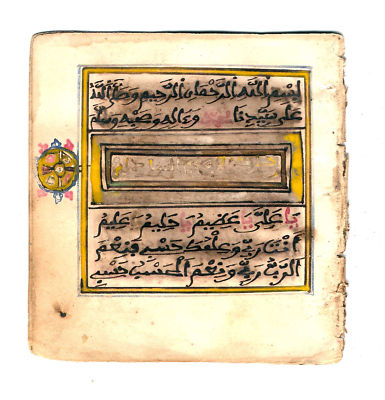 بسم الله الرحمان الرحيم وصلى الله
على سيدنا محمد وءاله وصحبه وسلم
يا علي يا عظيم يا حليم عليم
أنت ربي وعلمك حسبي فنعم
الرب ربي ونعم الحسب حسبي